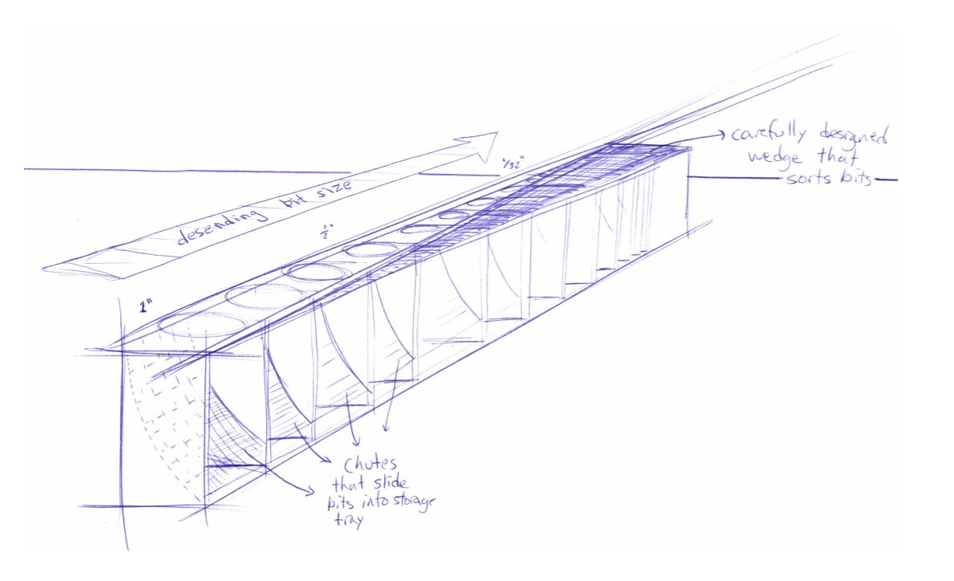 carefully designed
wedge that
sorts bits
1/32"
desending bit size
1/2"
1"
Chutes
that slide
bits into storage
tray